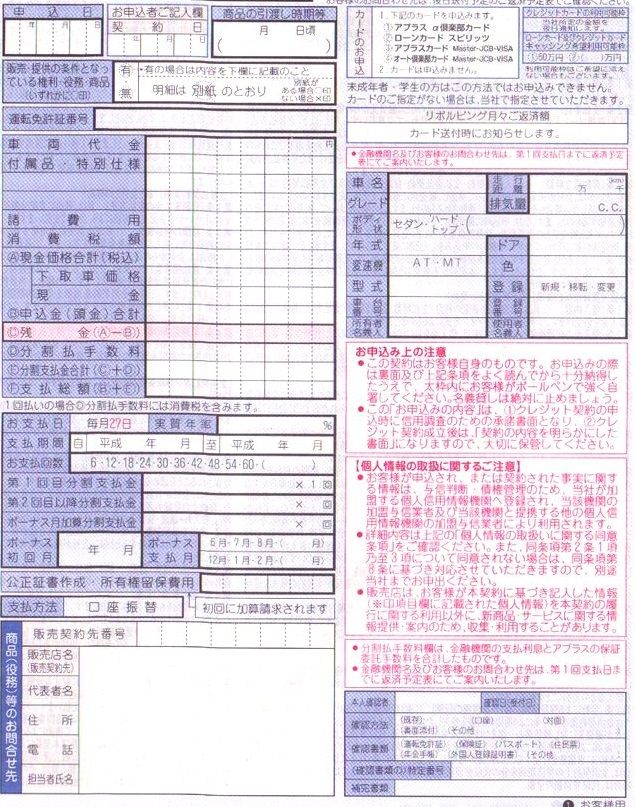 申込日
年 月 日
お申込者ご記入欄
契約日
年 月 日
商品の引渡し時期等
月 日頃
販売・提供の条件となっ
ている権利・役務・商品
(いずれかに○印)
有
無
・有の場合は内容を下欄に記載のこと
明細は 別紙 のとおり
別紙が
ある場合○印
ない場合×印
運転免許証番号
車両代金
円
付属品 特別仕様
諸費用
消費税額
Ⓐ現金価格合計(税込)
下取車価格
現金
Ⓑ申込金(頭金)合計
Ⓒ残金(Ⓐ-Ⓑ)
Ⓓ分割払手数料
Ⓔ分割支払金合計(Ⓒ+Ⓓ)
Ⓕ支払総額(Ⓑ+Ⓔ)
1回払いの場合Ⓓ分割払手数料には消費税を含みます。
お支払日
毎月27日
実質年率
%
支払期間
自 平成 年 月 至 平成 年 月
お支払回数
6・12・18・24・30・36・42・48・54・60・( )
第1回目分割支払金
×1回
第2回目以降分割支払金
× 回
ボーナス月加算分割支払金
× 回
ボーナス
初回月
年 月
ボーナス
支払月
6月・7月・8月・( 月)
12月・1月・2月・( 月)
公正証書作成・所有権留保費用
支払方法
口座振替
初回に加算請求されます
商品(役務)等のお問合せ先
販売契約先番号
販売店名
(販売契約先)
代表者名
住所
電話
担当者氏名
カードのお申込
1.下記のカードを申込みます。
①アプラス α倶楽部カード
②ローンカード スピリッツ
③アプラスカード Master・JCB・VISA
④オート倶楽部カード Master・JCB・VISA
2.カードは申込みません。
クレジットカードの利用可能枠
当社所定の金額を
後日通知します。
ローンカード及びクレジットカード
キャッシング希望利用可能枠
①50万円 ②( )万円
利用可能枠はご希望に添え
ない場合もございます。
未成年者・学生の方はこの方法ではお申込みできません。
カードのご指定がない場合は、当社で指定させていただきます。
リボルビング月々ご返済額
カード送付時にお知らせします。
●金融機関名及びお客様のお問合わせ先は、第1回支払日までに返済予定
表にてご案内いたします。
車名
走行
距離
(km)
万 千
グレード
排気量
C.C.
ボディ
形状
セダン・ハード
トップ・( )
年式
ドア
変速機
AT・MT
色
型式
登録
新規・移転・変更
車台
番号
登録
番号
所有者
名義人
使用者
名義人
お申込み上の注意
●この契約はお客様自身のものです。お申込みの際
は裏面及び上記条項をよく読んでから十分納得し
たうえで、太枠内にお客様がボールペンで強く自
署してください。名義貸しは絶対に止めましょう。
●この「お申込みの内容」は、①クレジット契約の申
込時に信用調査のための承諾書面となり、②クレ
ジット契約成立後は、「契約の内容を明らかにした
書面」になりますので、大切に保管してください。
【個人情報の取扱に関するご注意】
●お客様が申込され、または契約された事実に関す
る情報は、与信判断・債権管理のため、当社が加
盟する個人信用情報機関へ登録され、当該機関の
加盟与信業者及び当該機関と提携する他の個人信
用情報機関の加盟与信業者により利用されます。
●詳細内容は上記の「個人情報の取扱いに関する同意
条項」をご確認ください。また、同条項第2条1項
乃至3項について同意されない場合は、同条項第
8条に基づき対応させていただきますので、別途
当社までお申出ください。
●販売店は、お客様が本契約に基づき記入した情報
(※印項目欄に記載された個人情報)を本契約の履
行に関する利用以外に、新商品・サービスに関する情
報提供・案内のため、収集・利用することがあります。
●分割払手数料欄は、金融機関の支払利息とアプラスの保証
委託手数料を合計したものです。
●金融機関名及びお客様のお問合わせ先は、第1回支払日ま
でに返済予定表にてご案内いたします。
本人確認者
確認日(受付日)
確認方法
(既存) (口座) (対面)
(書面添付) (その他 )
確認書類
(運転免許証) (保険証) (パスポート) (住民票)
(年金手帳) (外国人登録証明書) (その他 )
(確認書類の)特定番号
補完書類
❶ お客様用